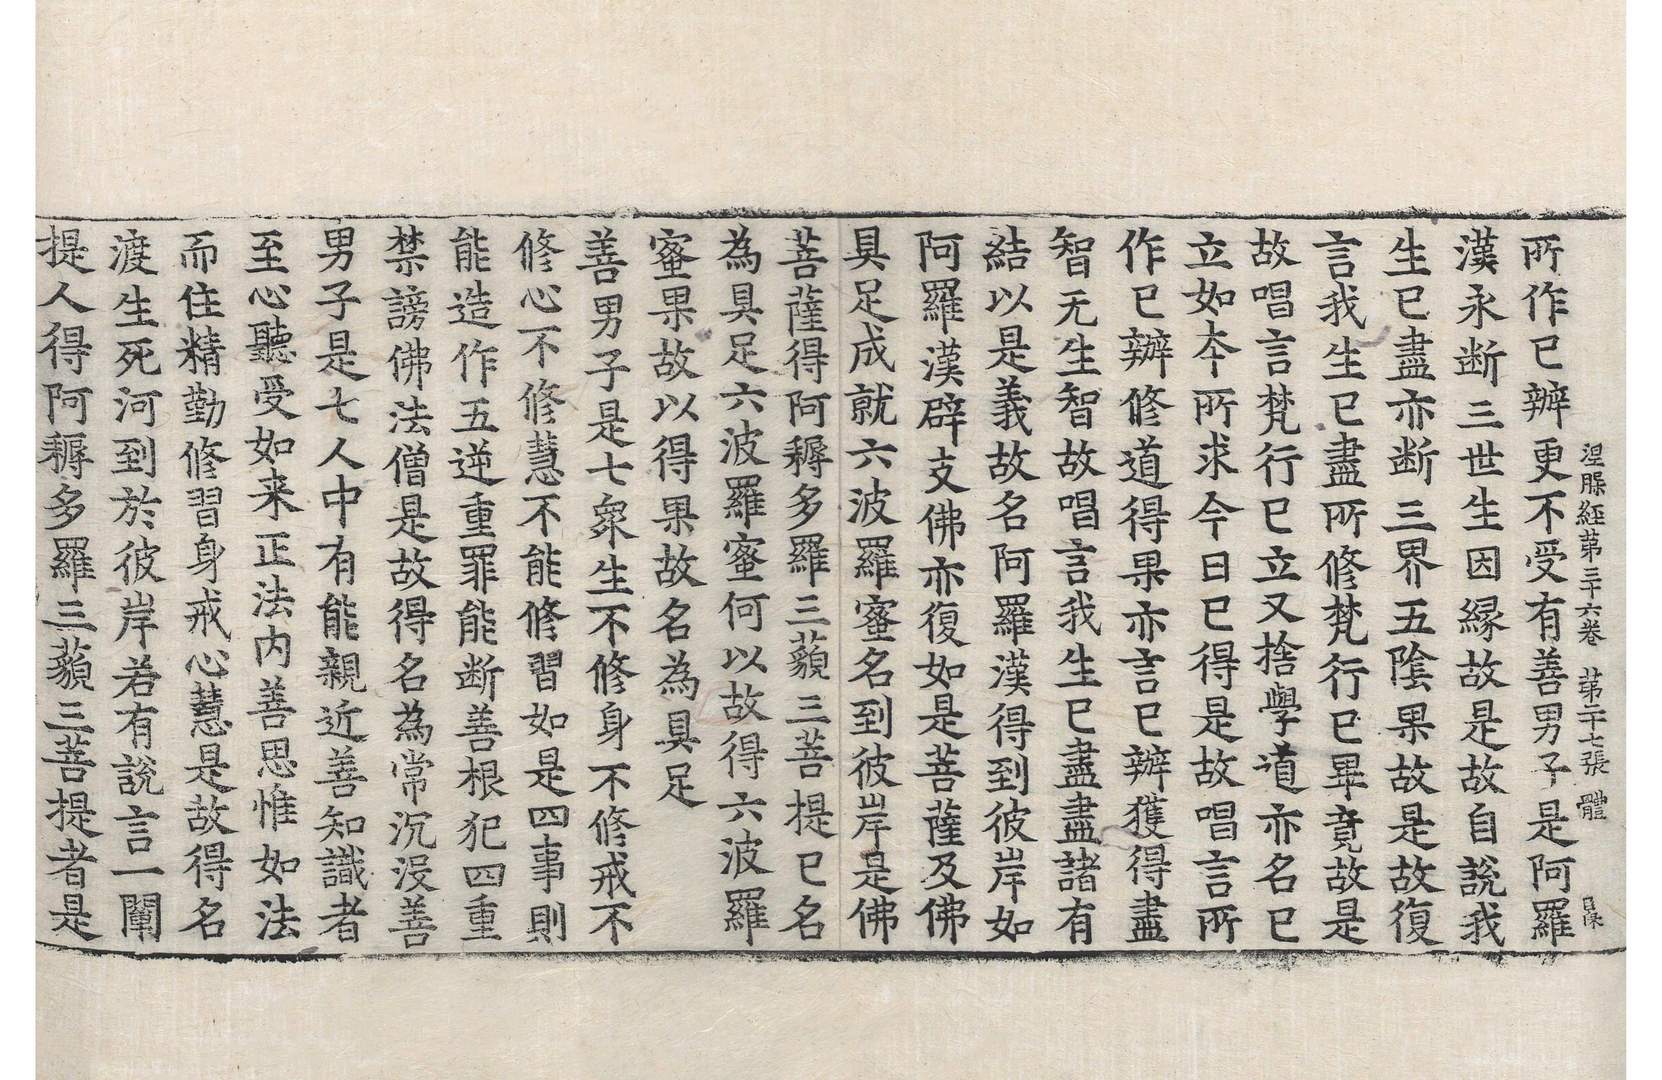 涅槃経苐三十六巻　苐二十七張　體
所作已辦更不受有善男子是阿羅
漢永断三世生因縁故是故自說我
生已盡亦断三界五陰果故是故復
言我生已盡所修梵行已畢竟故是
故唱言梵行已立又捨學道亦名已
立如本所求今日已得是故唱言所
作已辦修道得果亦言已辦獲得盡
智无生智故唱言我生已盡盡諸有
結以是義故名阿羅漢得到彼岸如
阿羅漢辟支佛亦復如是菩薩及佛
具足成就六波羅蜜名到彼岸是佛
菩薩得阿耨多羅三藐三菩提已名
為具足六波羅蜜何以故得六波羅
蜜果故以得果故名為具足
善男子是七衆生不修身不修戒不
修心不修慧不能修習如是四事則
能造作五逆重罪能断善根犯四重
禁謗佛法僧是故得名為常沉沒善
男子是七人中有能親近善知識者
至心聽受如来正法内善思惟如法
而住精勤修習身戒心慧是故得名
渡生死河到於彼岸若有說言一闡
提人得阿耨多羅三藐三菩提者是